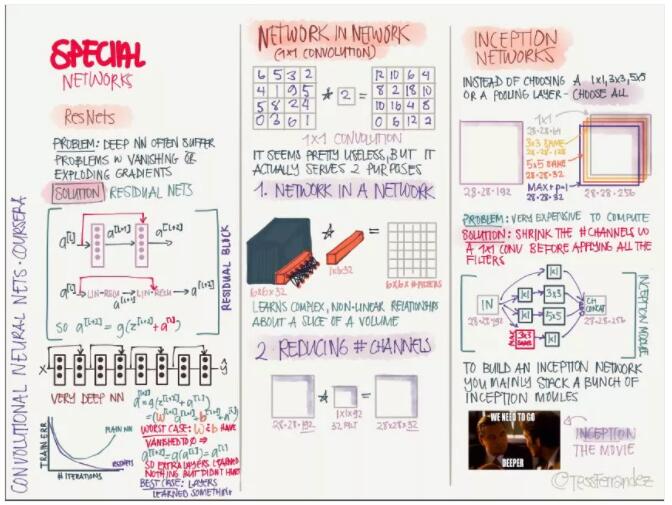 CONVOLUTIONAL NEURAL NETS • COURSERA
SPECIAL
NETWORKS
ResNets
PROBLEM: DEEP NN OFTEN SUFFER
PROBLEMS W VANISHING OR
EXPLODING GRADIENTS
SOLUTION: RESIDUAL NETS
a[l] a[l+1] a[l+2]
a[l] LIN-RELU LIN-RELU a[l+2]
a[l+1]
SO a[l+2] = g(z[l+2] + a[l])
RESIDUAL BLOCK
X ŷ
VERY DEEP NN
TRAIN ERR
PLAIN NN
RESNETS
# ITERATIONS
WORST CASE: W & b HAVE
VANISHED TO 0 ⇒
SO EXTRA LAYERS LEARNED
NOTHING BUT DIDN'T HURT
BEST CASE: LAYERS
LEARNED SOMETHING
NETWORK IN NETWORK
(1x1 CONVOLUTION)
6 5 3 2 12 10 6 4
4 1 9 5 * 2 = 8 2 18 10
5 8 2 4 10 16 4 8
0 3 6 1 0 6 12 2
1x1 CONVOLUTION
IT SEEMS PRETTY USELESS, BUT IT
ACTUALLY SERVES 2 PURPOSES
1. NETWORK IN A NETWORK
* =
6x6x32 1x1x32 6x6x # FILTERS
LEARNS COMPLEX, NON-LINEAR RELATIONSHIPS
ABOUT A SLICE OF A VOLUME
2. REDUCING # CHANNELS
* =
28•28•192 1x1x192 28x28x32
32 FILT
INCEPTION
NETWORKS
INSTEAD OF CHOOSING A 1x1, 3x3, 5x5
OR A POOLING LAYER - CHOOSE ALL
1x1
28•28•64
3x3 SAME
28•28•128
5x5 SAME
28•28•32
MAX+P=1
28•28•32
28•28•192 28•28•256
PROBLEM: VERY EXPENSIVE TO COMPUTE
SOLUTION: SHRINK THE # CHANNELS W
A 1x1 CONV BEFORE APPLYING ALL THE
FILTERS
IN
28•28•192
1x1
1x1 3x3
1x1 5x5
3x3 SAME 1x1
CH CONCAT
28•28•256
INCEPTION MODULE
TO BUILD AN INCEPTION NETWORK
YOU MAINLY STACK A BUNCH OF
INCEPTION MOULES
WE NEED TO GO
DEEPER
INCEPTION
THE MOVIE
@TessFerrandez